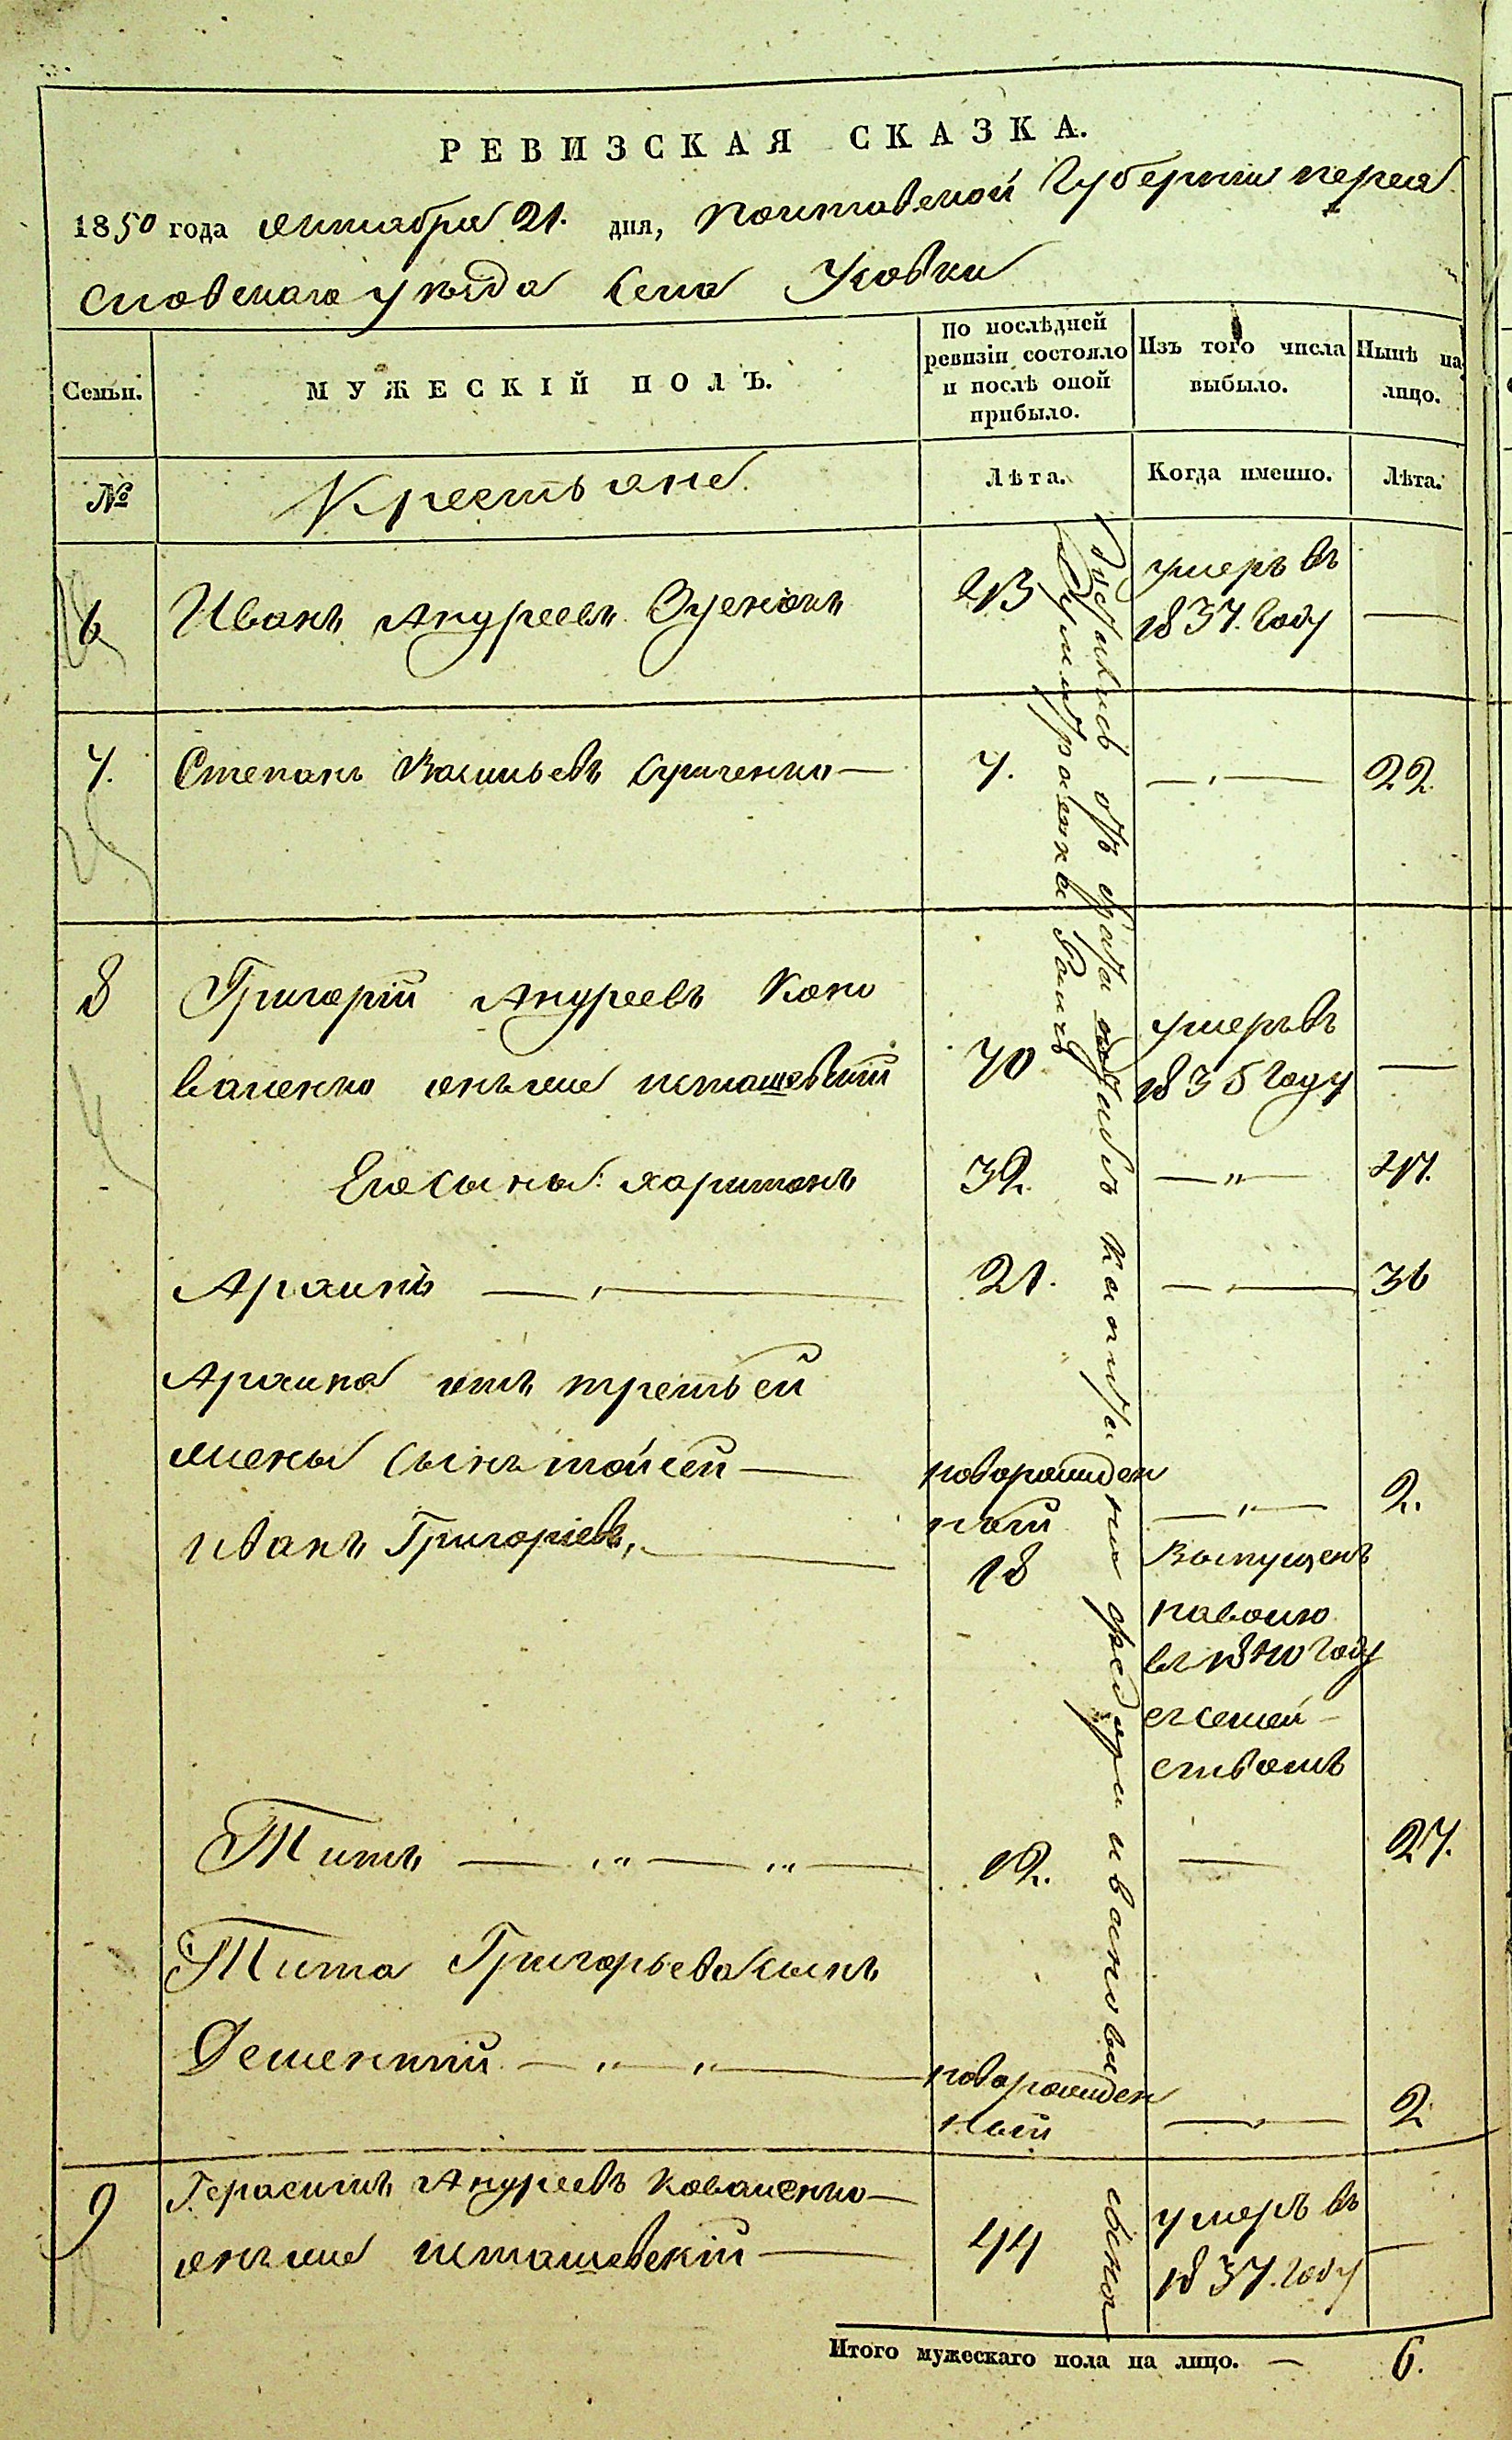 РЕВИЗСКАЯ СКАЗКА.
1850 года октября 21. дня, Полтавской Губернии перея
славскаго уѣзда села Усовки
Семьи.
МУЖЕСКІЙ ПОЛЪ.
По послѣдней ревизіи состояло и послѣ оной прибыло.
Изъ того числа выбыло.
Нынѣ на лицо.
№
Крестьяне
Лѣта.
Когда именно.
Лѣта.
6 Иванъ Андреевъ 43 умеръ въ
1837. Году —
7. Степанъ Васильевъ 7. — 22
8 Григорій Андреевъ Кова
ленко онъ же Осташевскій 70 умеръ въ
1835 Году —
Его сыны: Харитонъ 32. — 47.
Архипъ — 21. — 36
Архипа отъ третьей
жены сынъ Мойсей — новорожден
ный — 2.
Иванъ Григоріевъ, — 18 Выпущенъ
на волю
въ 1840 Году
съ семей-
ствомъ
Титъ — 12. — 27.
Тита Григорьева сынъ
Дементий — новорожден
ный — 2
9 Герасимъ Андреевъ Коваленко —
онъ же Осташевскій — 44 умеръ въ
1837. Году —
Итого мужескаго пола на лицо. — 6.